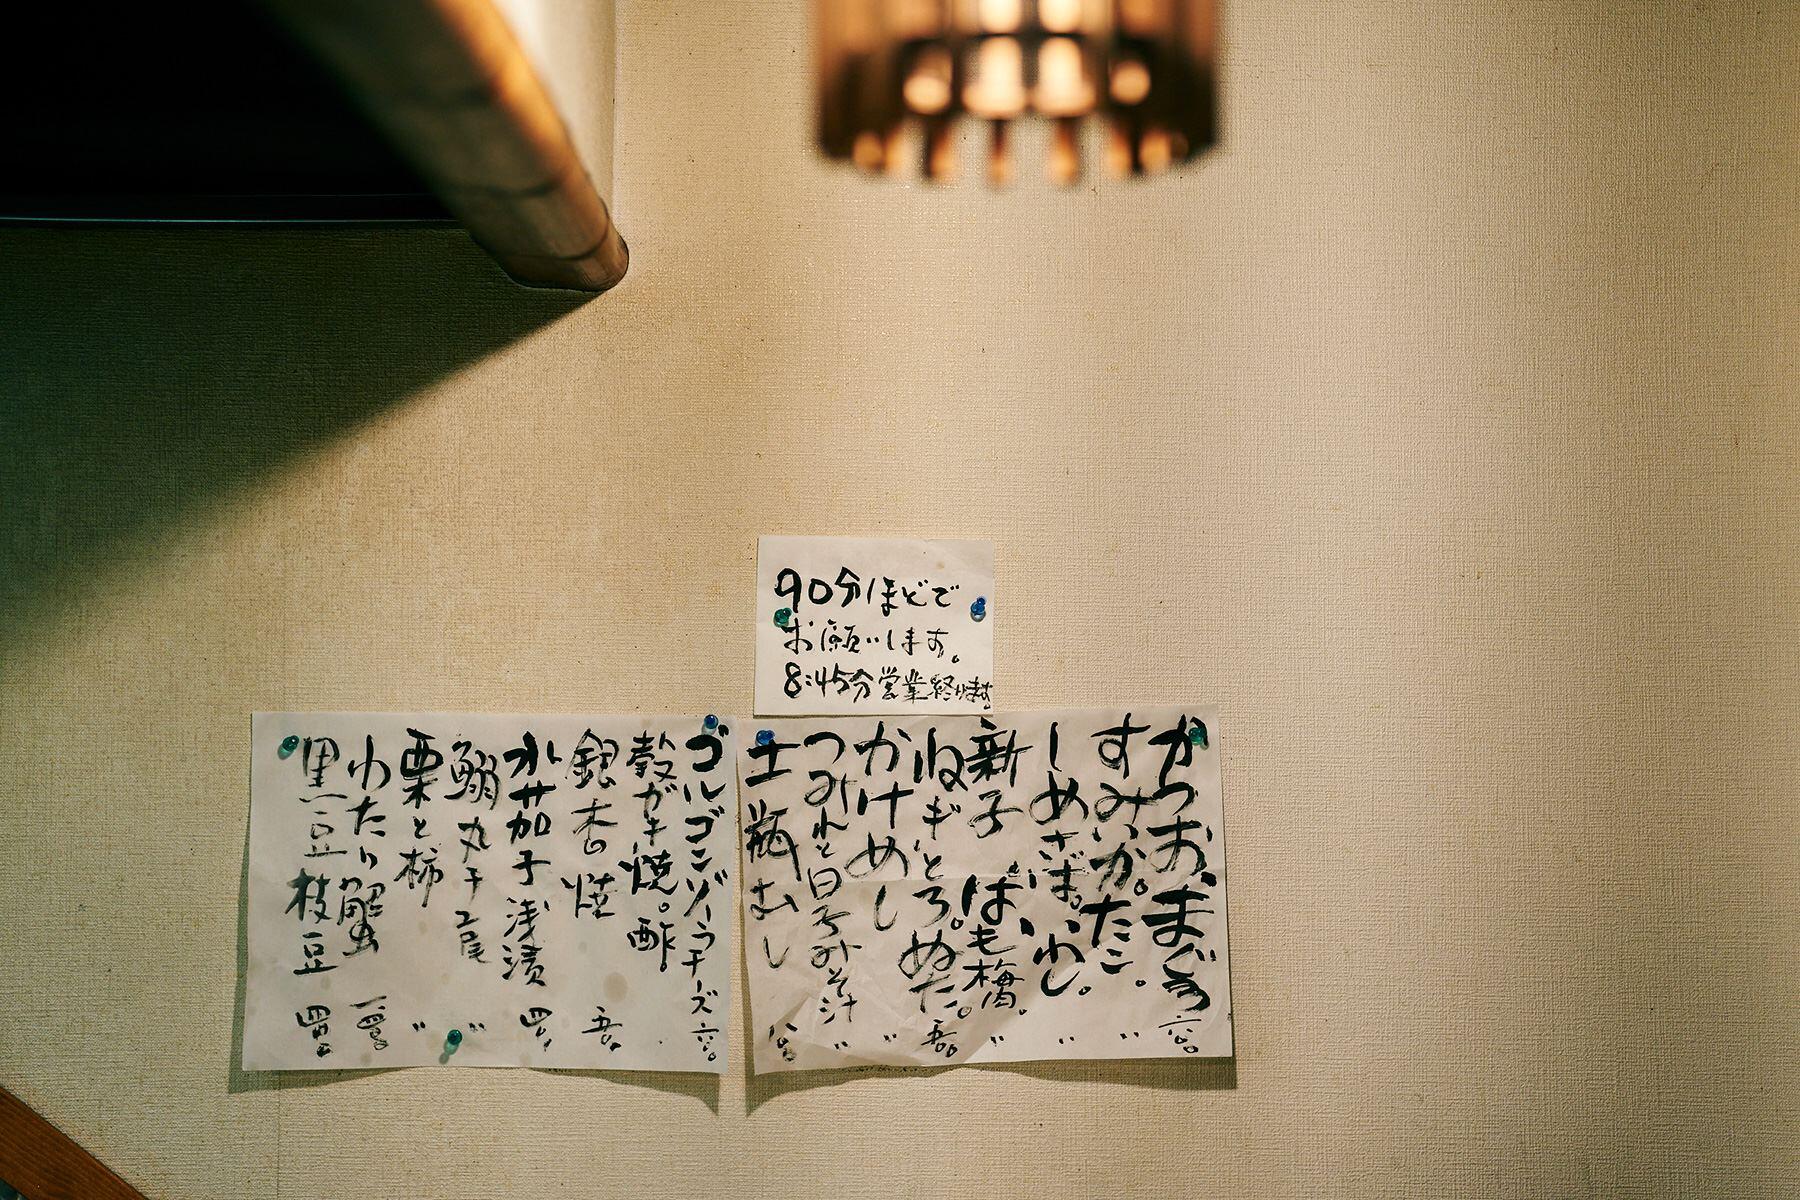 90分ほどで
お願いします。
8:45分営業終ります
かつお、まぐろ 六〇。
すみいか。たこ。〃
しめさば。いわし。〃
新子 はも梅肉。〃
ねぎとろ。ぬた。五〇。
かけめし 〃
つみれと白子みそ汁 〃
土瓶むし
ゴルゴンゾーラチーズ 六〇。
殻ガキ焼。酢。
銀杏焼 五〇。
水茄子浅漬 四〇。
鰯丸干二尾 〃
栗と柿 〃
わたり蟹
黒豆枝豆